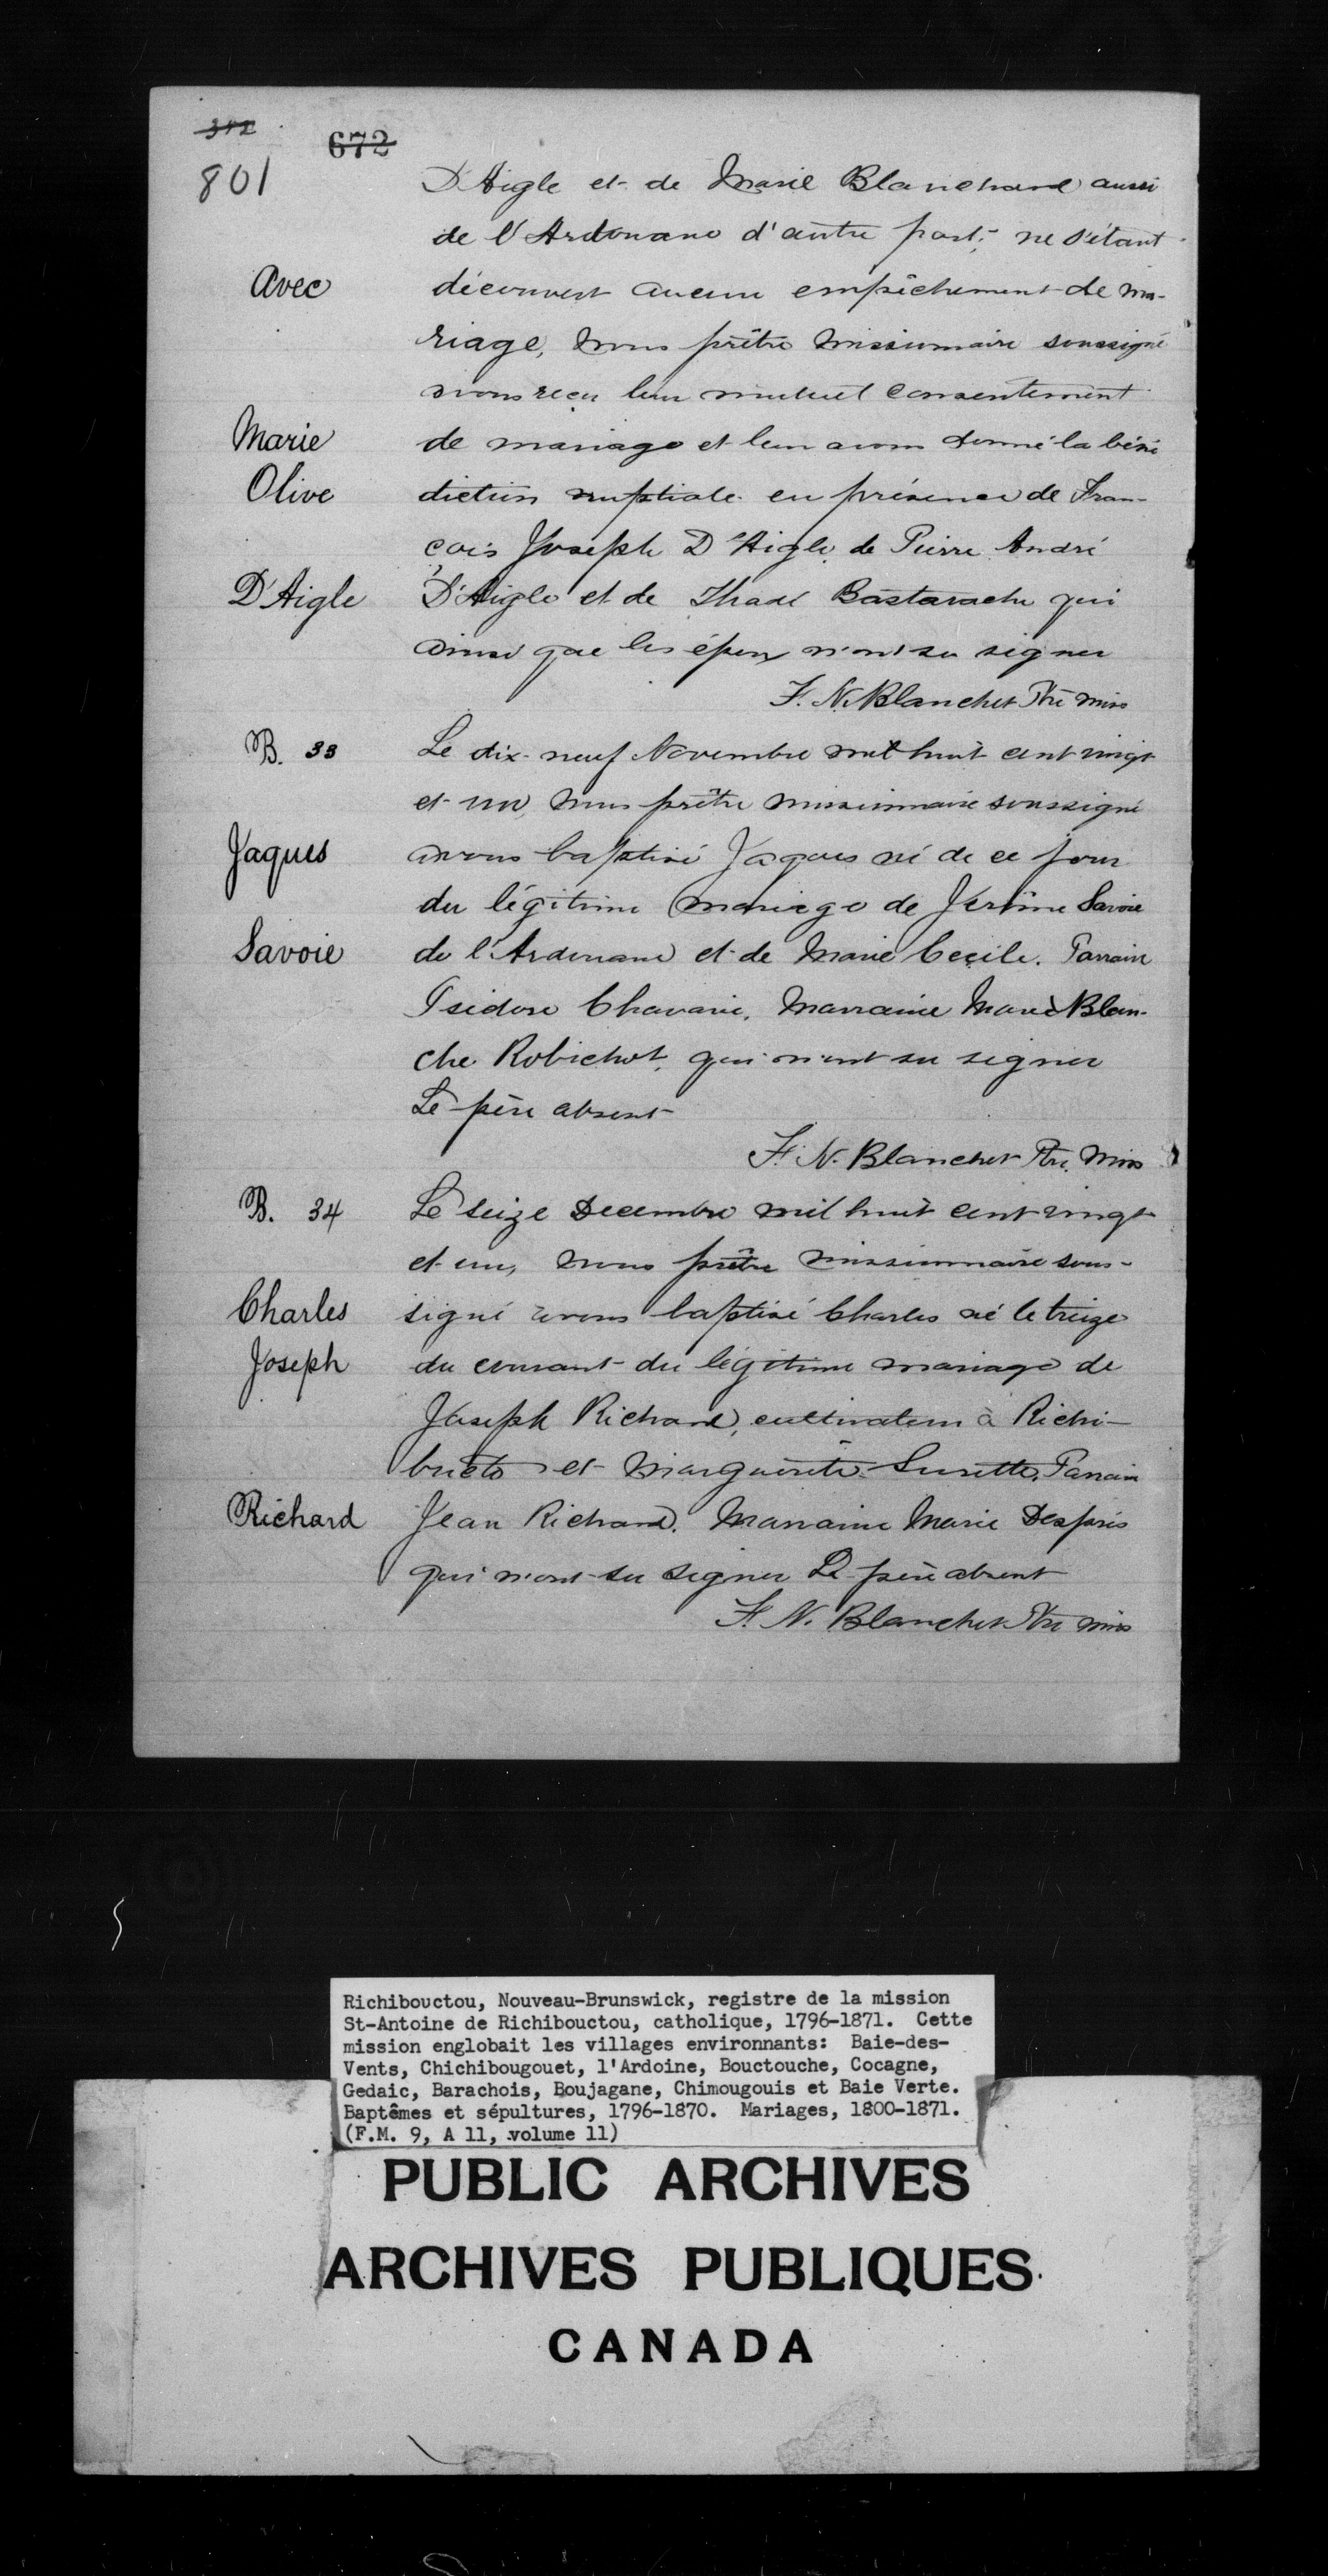 382
672
801
D'Aigle et de Marie Blanchard aussi
de l'Ardouane d'autre part; ne s'étant
Avec
découvert aucun empêchement de ma-
riage, nous prêtre missionnaire soussigné
avons reçu leur mutuel consentement
Marie
de mariage et leur avons donné la béné
Olive
diction nuptiale en présence de Fran-
çois Joseph D'Aigle, de Pierre André
D'Aigle
D'Aigle et de Thadé Bastarache qui
ainsi que les époux n'ont su signer
F. N. Blanchet Ptre miss
B. 33
Le dix-neuf Novembre mil huit cent vingt
et un, nous prêtre missionnaire soussigné
Jaques
avons baptisé Jaques né de ce jour
du légitime mariage de Jérôme Savoie
Savoie
de l'Ardouane et de Marie Cecile. Parrain
Isidore Chavarie, Marraine Marie Blan-
che Robichot, qui n'ont su signer
Le père absent
F. N. Blanchet Ptre. Miss
B. 34
Le seize Decembre mil huit cent vingt
et un, nous prêtre missionnaire sous-
Charles
signé avons baptisé Charles né le treize
Joseph
du courant du légitime mariage de
Joseph Richard, cultivateur à Richi-
bucto et Marguerite Surette. Parrain
Richard
Jean Richard. Marraine Marie Desprès
qui n'ont su signer Le père absent
F. N. Blanchet Ptre miss
Richibouctou, Nouveau-Brunswick, registre de la mission
St-Antoine de Richibouctou, catholique, 1796-1871. Cette
mission englobait les villages environnants: Baie-des-
Vents, Chichibougouet, l'Ardoine, Bouctouche, Cocagne,
Gedaic, Barachois, Boujagane, Chimougouis et Baie Verte.
Baptêmes et sépultures, 1796-1870. Mariages, 1800-1871.
(F.M. 9, A 11, volume 11)
PUBLIC ARCHIVES
ARCHIVES PUBLIQUES
CANADA